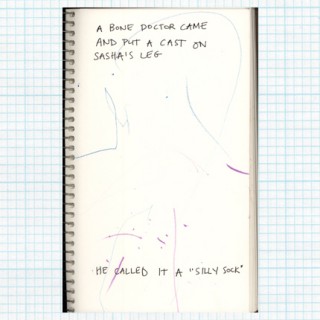 A BONE DOCTOR CAME
AND PUT A CAST ON
SASHA'S LEG
HE CALLED IT A "SILLY SOCK"